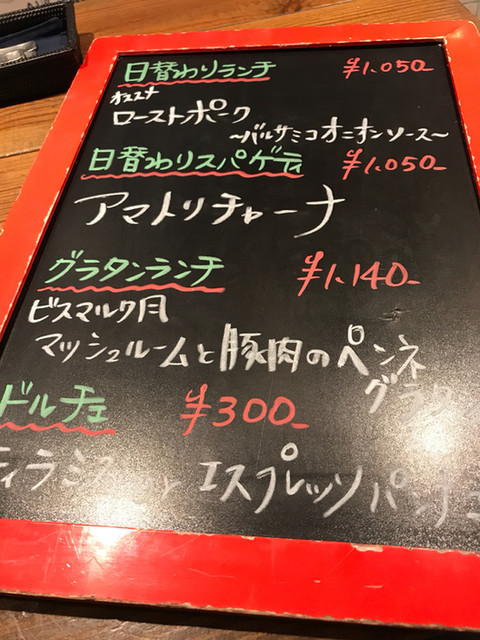 日替わりランチ ¥1,050-
オススメ
ローストポーク
〜バルサミコオニオンソース〜
日替わりスパゲティ ¥1,050-
アマトリチャーナ
グラタンランチ ¥1,140-
ビスマルク風
マッシュルームと豚肉のペンネ
グラタン
ドルチェ ¥300-
ティラミス と エスプレッソパンナコ